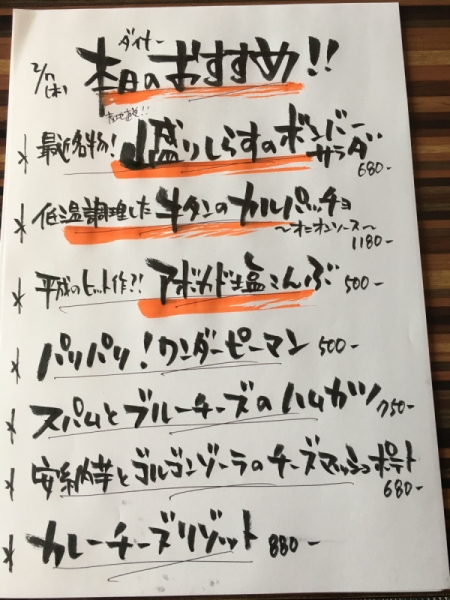 ダイナー
2/7(木) 本日のおすすめ!!
産地直送!!
* 最近名物! 山盛りしらすのボンバー
サラダ
680-
* 低温調理した牛タンのカルパッチョ
〜オニオンソース〜
1180-
* 平成のヒット作?! アボカド塩こんぶ 500-
* パリパリ!ワンダーピーマン 500-
* スパムとブルーチーズのハムカツ 750-
* 安納芋とゴルゴンゾーラのチーズマッシュポテト
680-
* カレーチーズリゾット 880-